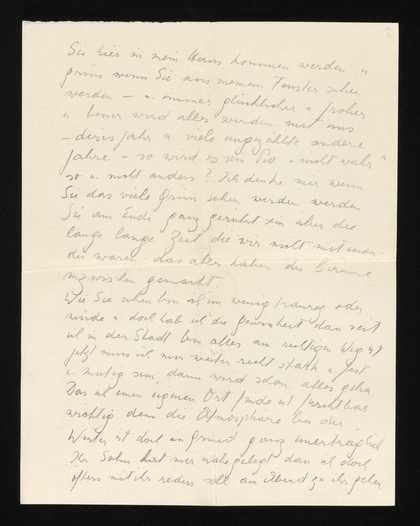 Sie hier in mein Haus kommen werden u
grün wenn Sie aus meinem Fenster sehen
werden – u. immer glücklicher u froher
u. besser wird alles werden mit uns
– dieses Jahr u viele ungezählte andere
Jahre – so wird es sein nicht wahr
so u nicht anders? Ich denke mir wenn
Sie das viele Grün sehen werden werden
Sie am Ende ganz gerührt sein über die
lange lange Zeit die wir nicht miteinan-
der waren, das alles haben die Bäume
inzwischen gemacht.
Wie Sie sehen bin ich ein wenig traurig oder
müde u doch hab ich die Gewissheit dass seit
ich in der Stadt bin alles am richtigen Weg ist
jetzt muss ich nur weiter recht stark u fest
u. mutig sein, dann wird schon alles gehn
Das ich einen eigenen Ort finde ist furchtbar
wichtig denn die Atmosphäre bei der
ist doch im Grund ganz unerträglich
Ihr Sohn hat mir nahegelegt dass ich doch
öfters mit ihr reden soll am Abend zu ihr gehen